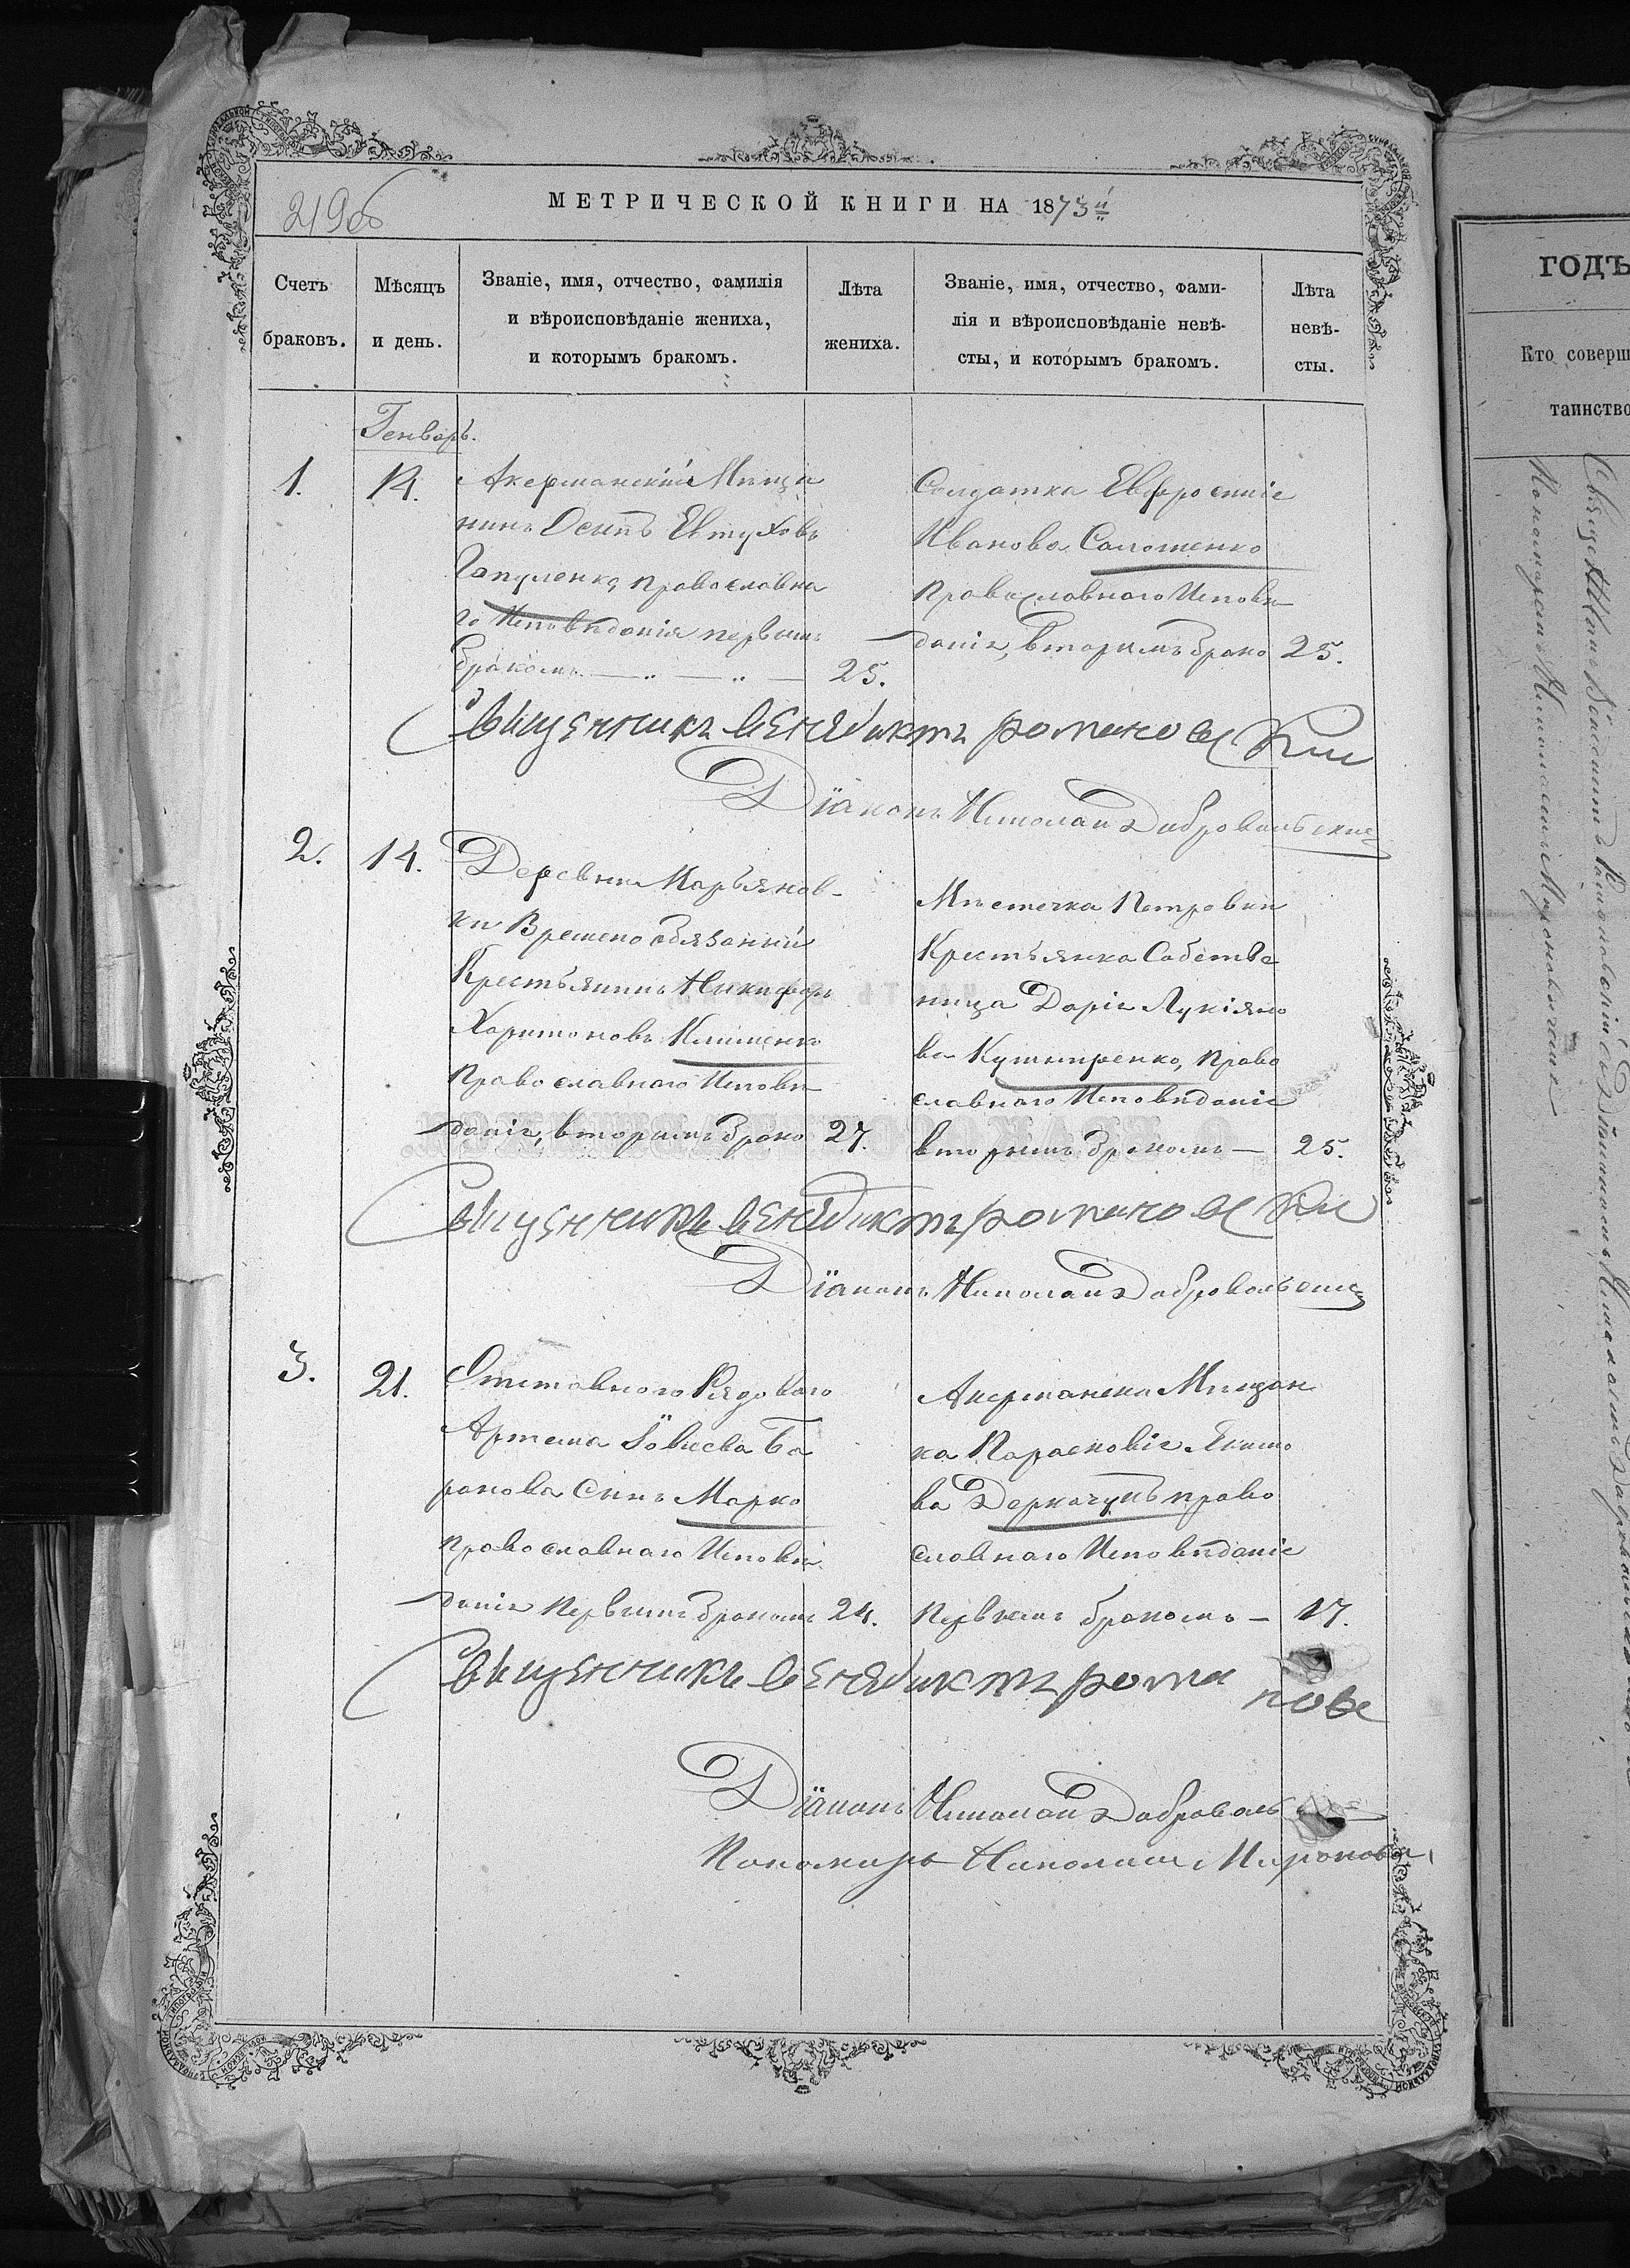 МЕТРИЧЕСКОЙ КНИГИ НА 1873й
Счетъ браковъ.
Мѣсяцъ и день.
Званіе, имя, отчество, фамилія
и вѣроисповѣданіе жениха,
и которымъ бракомъ.
Лѣта жениха.
Званіе, имя, отчество, фами-
лія и вѣроисповѣданіе невѣ-
сты, и которымъ бракомъ.
Лѣта
невѣ-
сты.
Генваръ.
1.
14.
Акерманскій Мѣща
нинъ Осипъ Евтуховъ
православна
го Исповѣданія первымъ
бракомъ
25.
Солдатка Евфросинія
Иванова
Православнаго Исповѣ
данія, вторимъ брако
25.
Священникъ Венедиктъ Романовскій
Діаконъ Николай Добровольскій
2.
14.
Деревни Марьянов-
ки Временообязанный
Крестьянинъ Никифоръ
Харитоновъ Клименко
Православнаго Исповѣ
данія, вторымъ брако
27.
Мѣстечка Петровки
Крестьянка Собстве
ница Дарія Лукіяно
ва Кушниренко, Право
славнаго Исповѣданія
вторымъ бракомъ —
25.
Священникъ Венедиктъ Романовскій
Діаконъ Николай Добровольскій
3.
21.
Отставного Рядового
Артема Іовлева Ба
ранова Синъ Марко
православнаго Исповѣ
данія Первымъ бракомъ
24.
Акерманска Мѣщан
ка Параскевія Якимо
ва Деркачукъ право
славнаго Исповѣданія
Первымъ бракомъ —
17.
Священникъ Венедиктъ Рома новс
Діаконъ Николай Доброволь
Пономарь Николай Миронови
ГОДЪ
Кто соверш
таинство